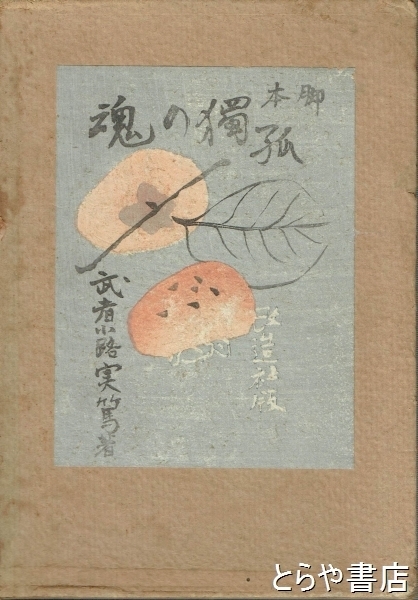 脚本
孤獨の魂
武者小路実篤著
改造社版
とらや書店